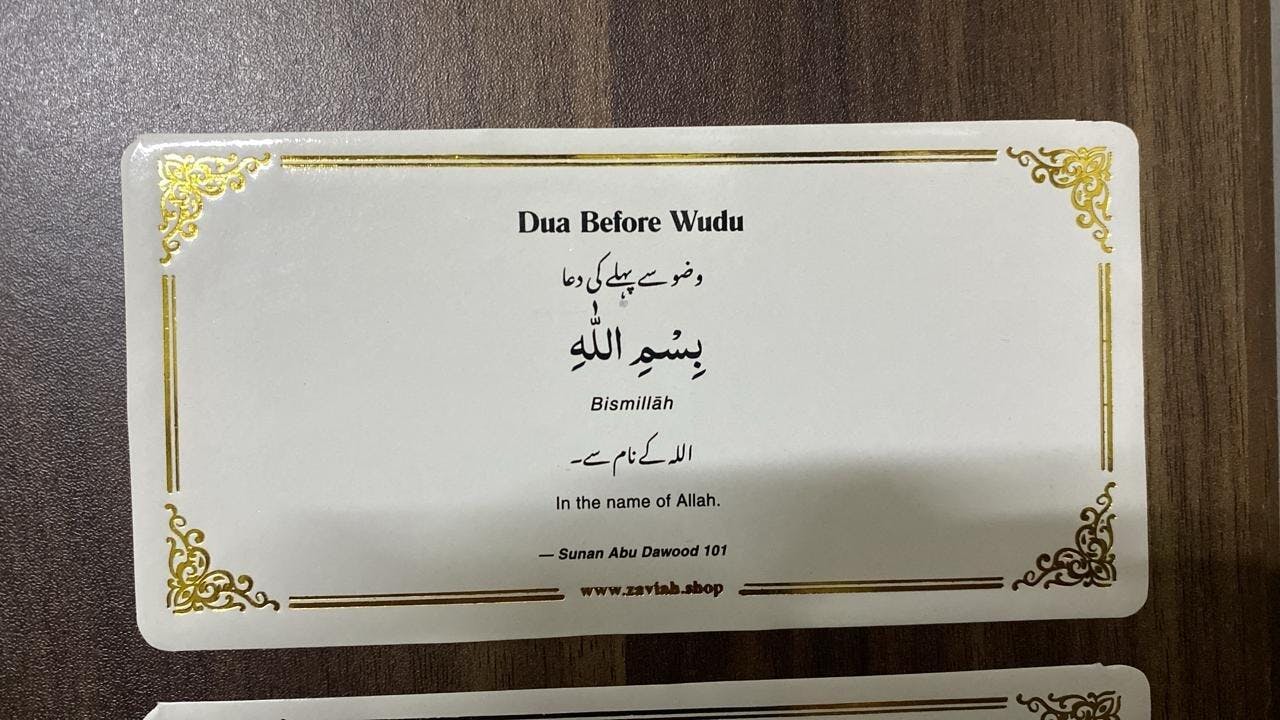 Dua Before Wudu
وضو سے پہلے کی دعا
بِسْمِ اللّٰهِ
Bismillāh
اللہ کے نام سے۔
In the name of Allah.
— Sunan Abu Dawood 101
www.zaviah.shop